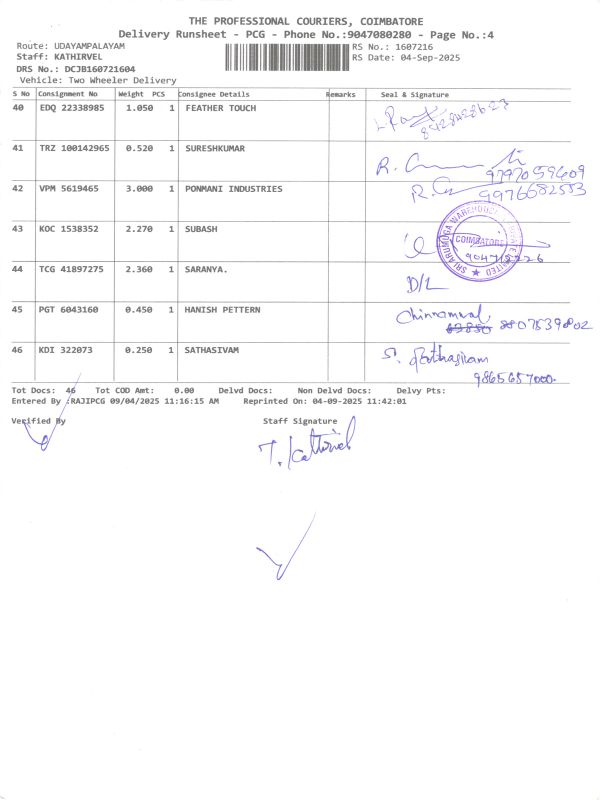 THE PROFESSIONAL COURIERS, COIMBATORE
Delivery Runsheet - PCG - Phone No.:9047080280 - Page No.:4
Route: UDAYAMPALAYAM RS No.: 1607216
Staff: KATHIRVEL RS Date: 04-Sep-2025
DRS No.: DCJB160721604
Vehicle: Two Wheeler Delivery
S No Consignment No Weight PCS Consignee Details Remarks Seal & Signature
40 EDQ 22338985 1.050 1 FEATHER TOUCH
41 TRZ 100142965 0.520 1 SURESHKUMAR
9797059609
42 VPM 5619465 3.000 1 PONMANI INDUSTRIES
9976682553
43 KOC 1538352 2.270 1 SUBASH
COIMBATORE
44 TCG 41897275 2.360 1 SARANYA.
D/L
45 PGT 6043160 0.450 1 HANISH PETTERN Chinnammal,
8807539802
46 KDI 322073 0.250 1 SATHASIVAM S. Sathasivam
9865687000
Tot Docs: 46 Tot COD Amt: 0.00 Delvd Docs: Non Delvd Docs: Delvy Pts:
Entered By :RAJIPCG 09/04/2025 11:16:15 AM Reprinted On: 04-09-2025 11:42:01
Verified By Staff Signature
T. Kathirvel